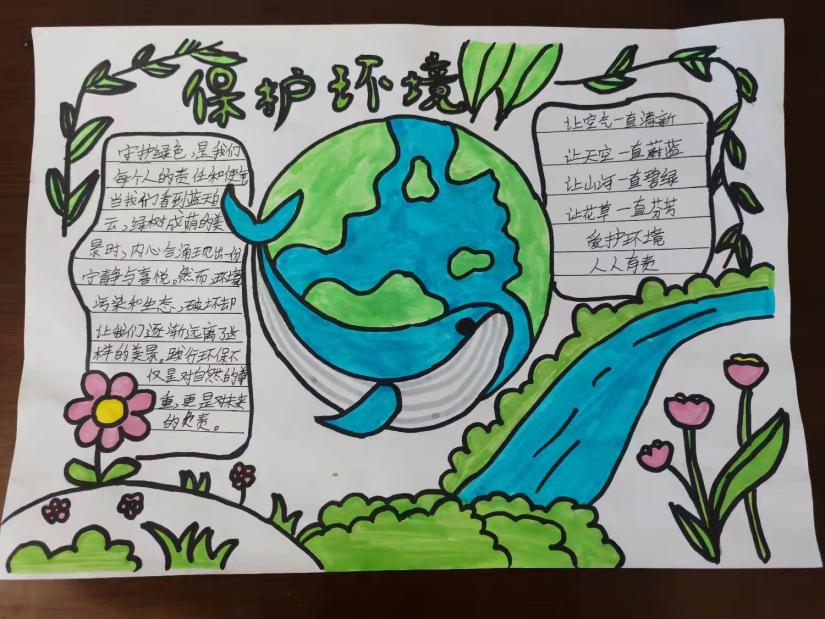 保护环境
守护绿色,是我们
每个人的责任和使命
当我们看到蓝天白
云,绿树成荫的美
景时,内心会涌现出一份
宁静与喜悦。然而环境
污染和生态,破坏却
让我们逐渐远离了这
样的美景。践行环保不
仅是对自然的尊
重,更是对未来
的负责。
让空气一直清新
让天空一直蔚蓝
让山河一直碧绿
让花草一直芬芳
爱护环境
人人有责